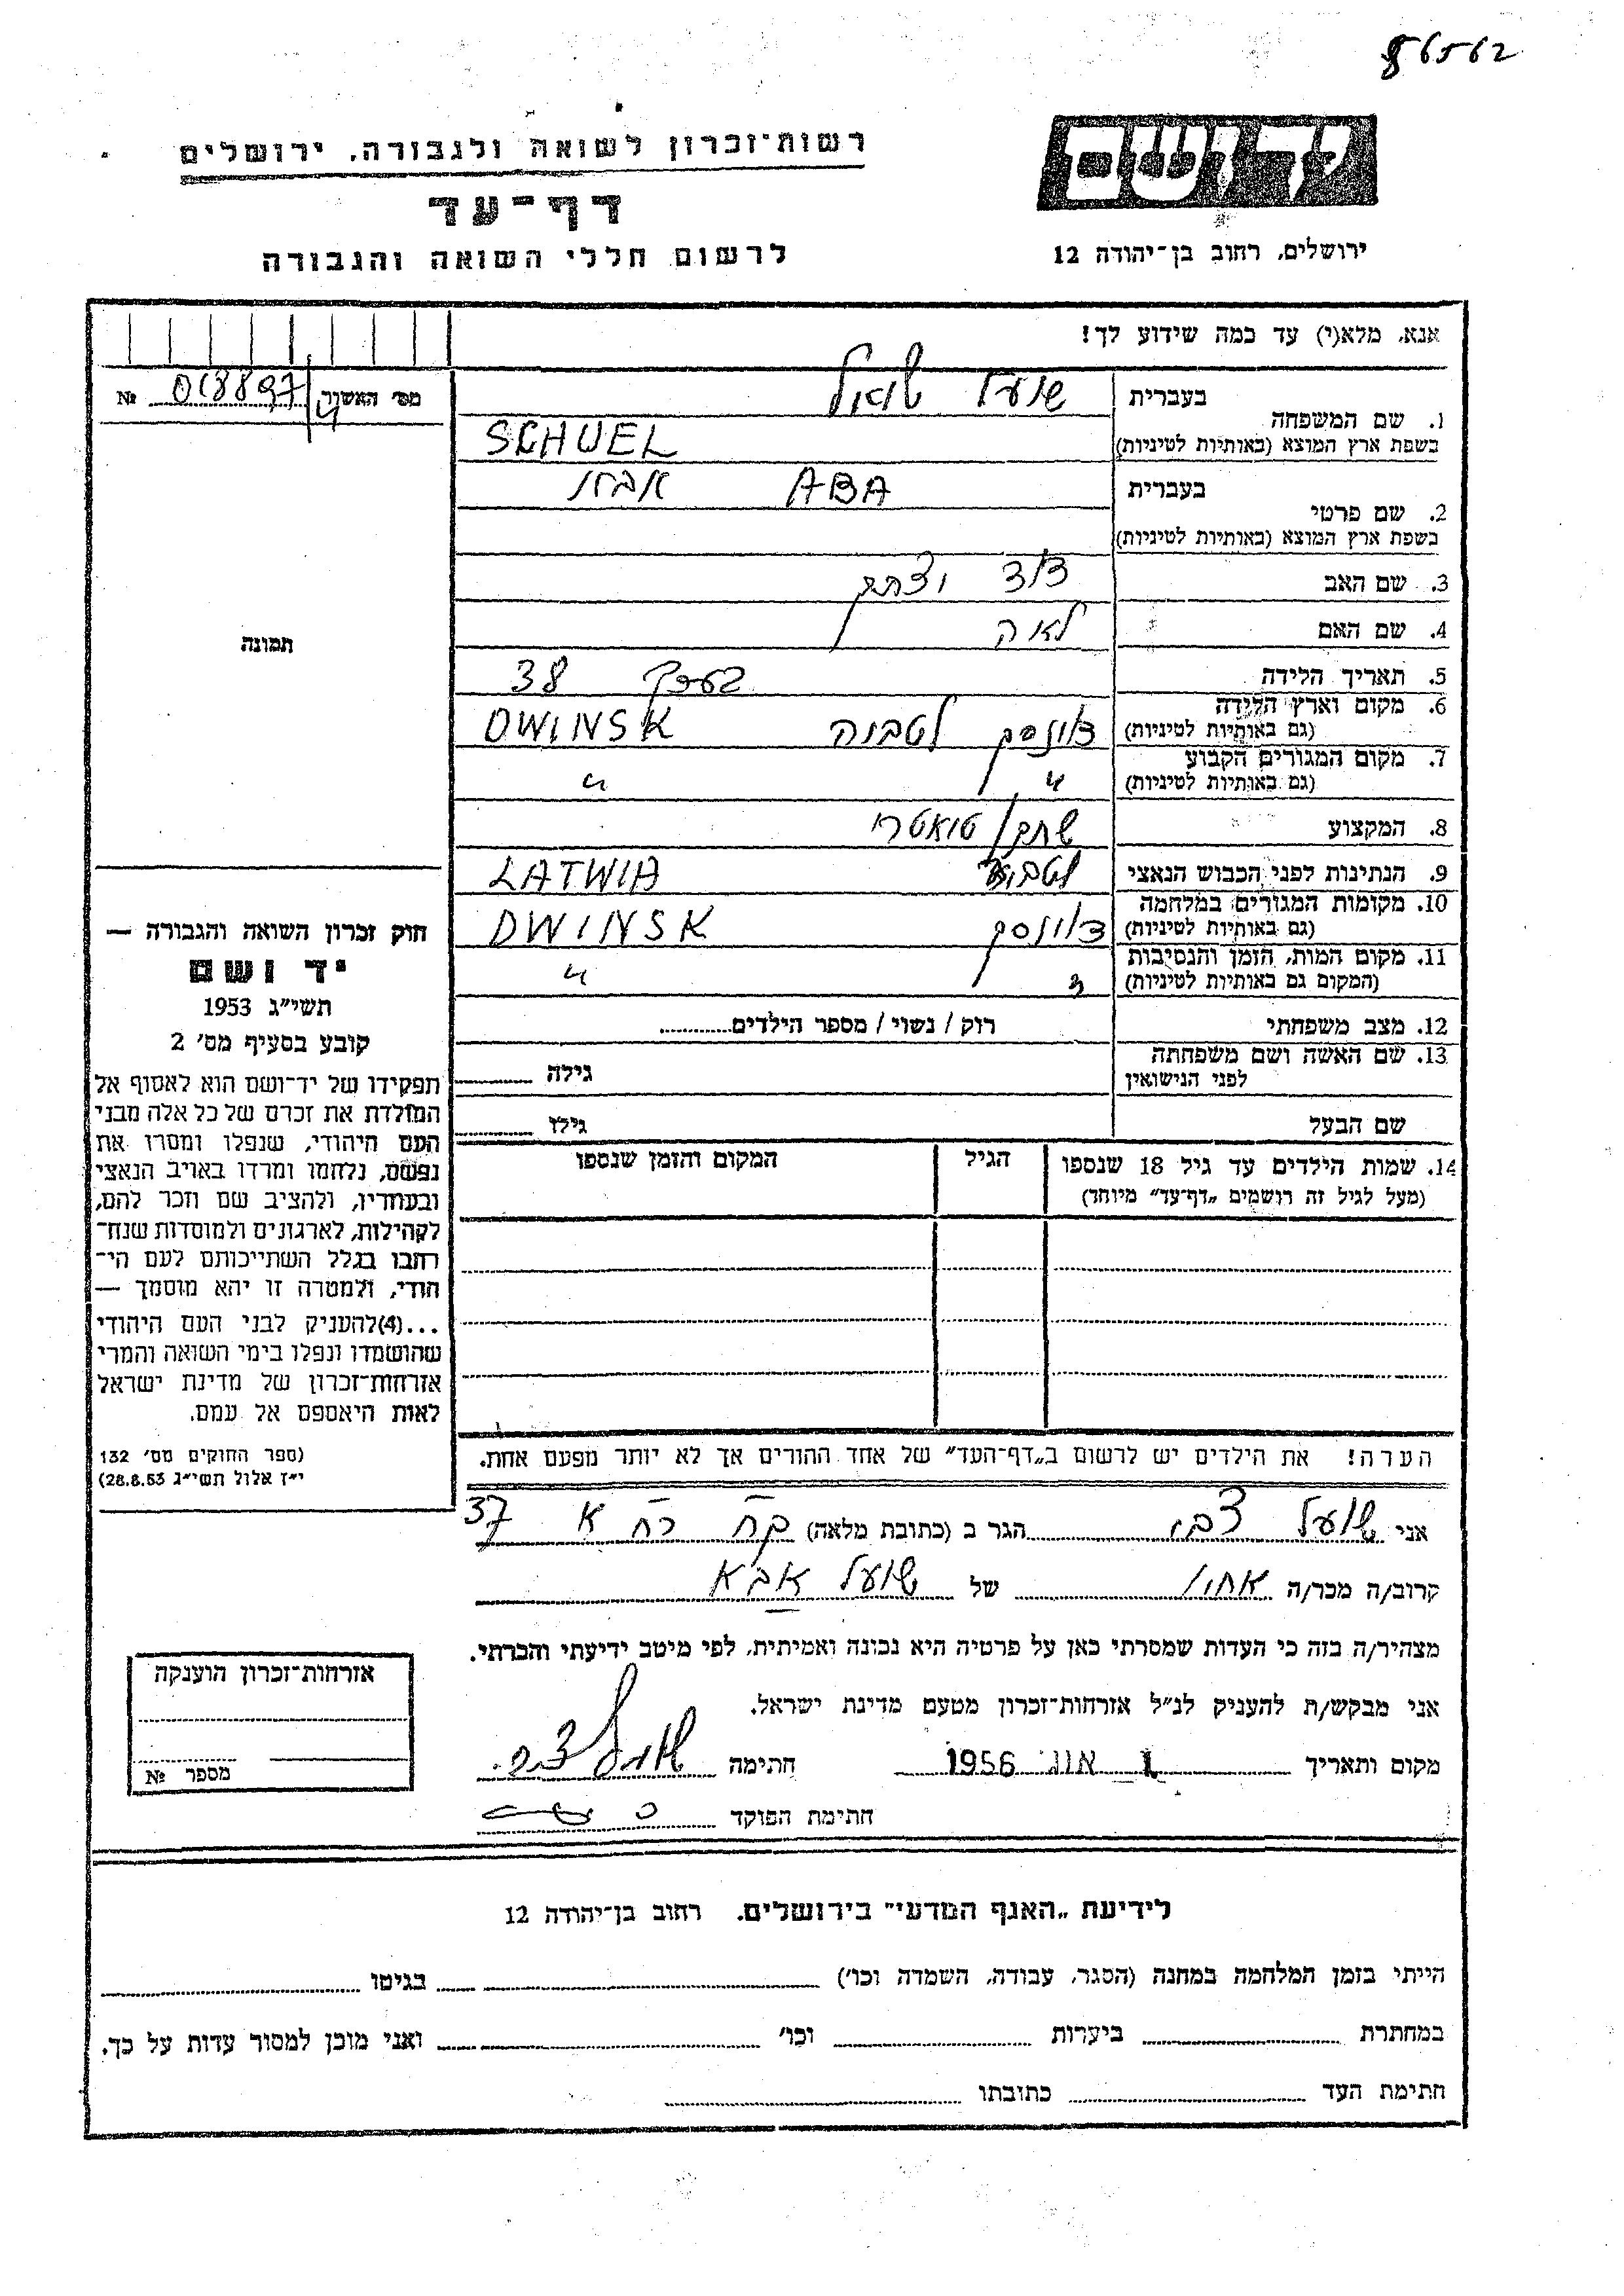 86562
רשות־זכרון לשואה ולגבורה, ירושלים
דף־עד
לרשום חללי השואה והגבורה
יד ושם
ירושלים, רחוב בן־יהודה 12
אנא, מלא(י) עד כמה שידוע לך!
מס׳ האשור 018897 №
תמונה
1. שם המשפחה
בעברית שועל
בשפת ארץ המוצא (באותיות לטיניות) SCHUEL
2. שם פרטי
בעברית ABA
בשפת ארץ המוצא (באותיות לטיניות)
3. שם האב דוד
4. שם האם לאה
5. תאריך הלידה בערך 38
6. מקום וארץ הלידה דוינסק לטביה DWINSK
(גם באותיות לטיניות)
7. מקום המגורים הקבוע " "
(גם באותיות לטיניות)
8. המקצוע שחקן
9. הנתינות לפני הכבוש הנאצי LATWIA
10. מקומות המגורים במלחמה דוינסק DWINSK
(גם באותיות לטיניות)
11. מקום המות, הזמן והנסיבות " "
(המקום גם באותיות לטיניות)
12. מצב משפחתי רוק / נשוי / מספר הילדים
13. שם האשה ושם משפחתה גילה
לפני הנישואין
שם הבעל גילו
14. שמות הילדים עד גיל 18 שנספו הגיל המקום והזמן שנספו
(מעל לגיל זה רושמים „דף־עד” מיוחד)
חוק זכרון השואה והגבורה —
יד ושם
תשי״ג 1953
קובע בסעיף מס׳ 2
תפקידו של יד־ושם הוא לאסוף אל
המולדת את זכרם של כל אלה מבני
העם היהודי, שנפלו ומסרו את
נפשם, נלחמו ומרדו באויב הנאצי
ובעוזריו, ולהציב שם וזכר להם,
לקהילות, לארגונים ולמוסדות שנח־
רבו בגלל השתייכותם לעם הי־
הודי, ולמטרה זו יהא מוסמך —
...(4)להעניק לבני העם היהודי
שהושמדו ונפלו בימי השואה והמרי
אזרחות־זכרון של מדינת ישראל
לאות היאספם אל עמם.
(ספר החוקים מס׳ 132
י״ז אלול תשי״ג 28.8.53)
הערה! את הילדים יש לרשום ב„דף־העד” של אחד ההורים אך לא יותר מפעם אחת.
אני שועל צבי הגר ב (כתובת מלאה) 37
קרוב/ה מכר/ה אחיו של שועל אבא
מצהיר/ה בזה כי העדות שמסרתי כאן על פרטיה היא נכונה ואמיתית, לפי מיטב ידיעתי והכרתי.
אני מבקש/ת להעניק לנ״ל אזרחות־זכרון מטעם מדינת ישראל.
מקום ותאריך 1 אוג׳ 1956 חתימה שועל צבי
חתימת הפוקד
אזרחות־זכרון הוענקה
מספר №
לידיעת „האגף המדעי” בירושלים, רחוב בן־יהודה 12
הייתי בזמן המלחמה במחנה (הסגר, עבודה, השמדה וכו׳) בגיטו
במחתרת ביערות וכו׳ ואני מוכן למסור עדות על כך.
חתימת העד כתובתו